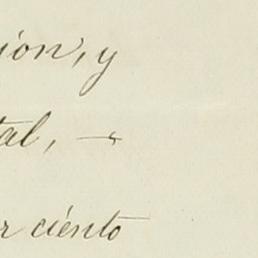 ion, y
tal, —
r ciento